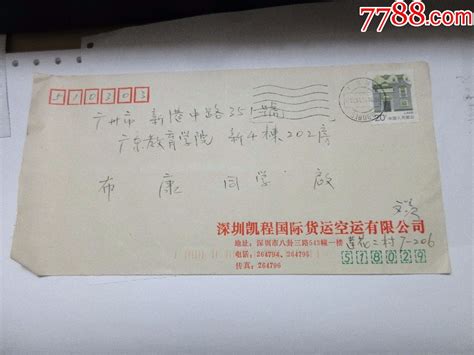 7788.com
510303
广州市 新港中路351號
广东教育学院 新4棟202房
布 康 同学 啟
20
深圳凯程国际货运空运有限公司
地址：深圳市八卦三路543幢一楼
莲花二村7-206
电话：264794、264795
传真：264796
518029